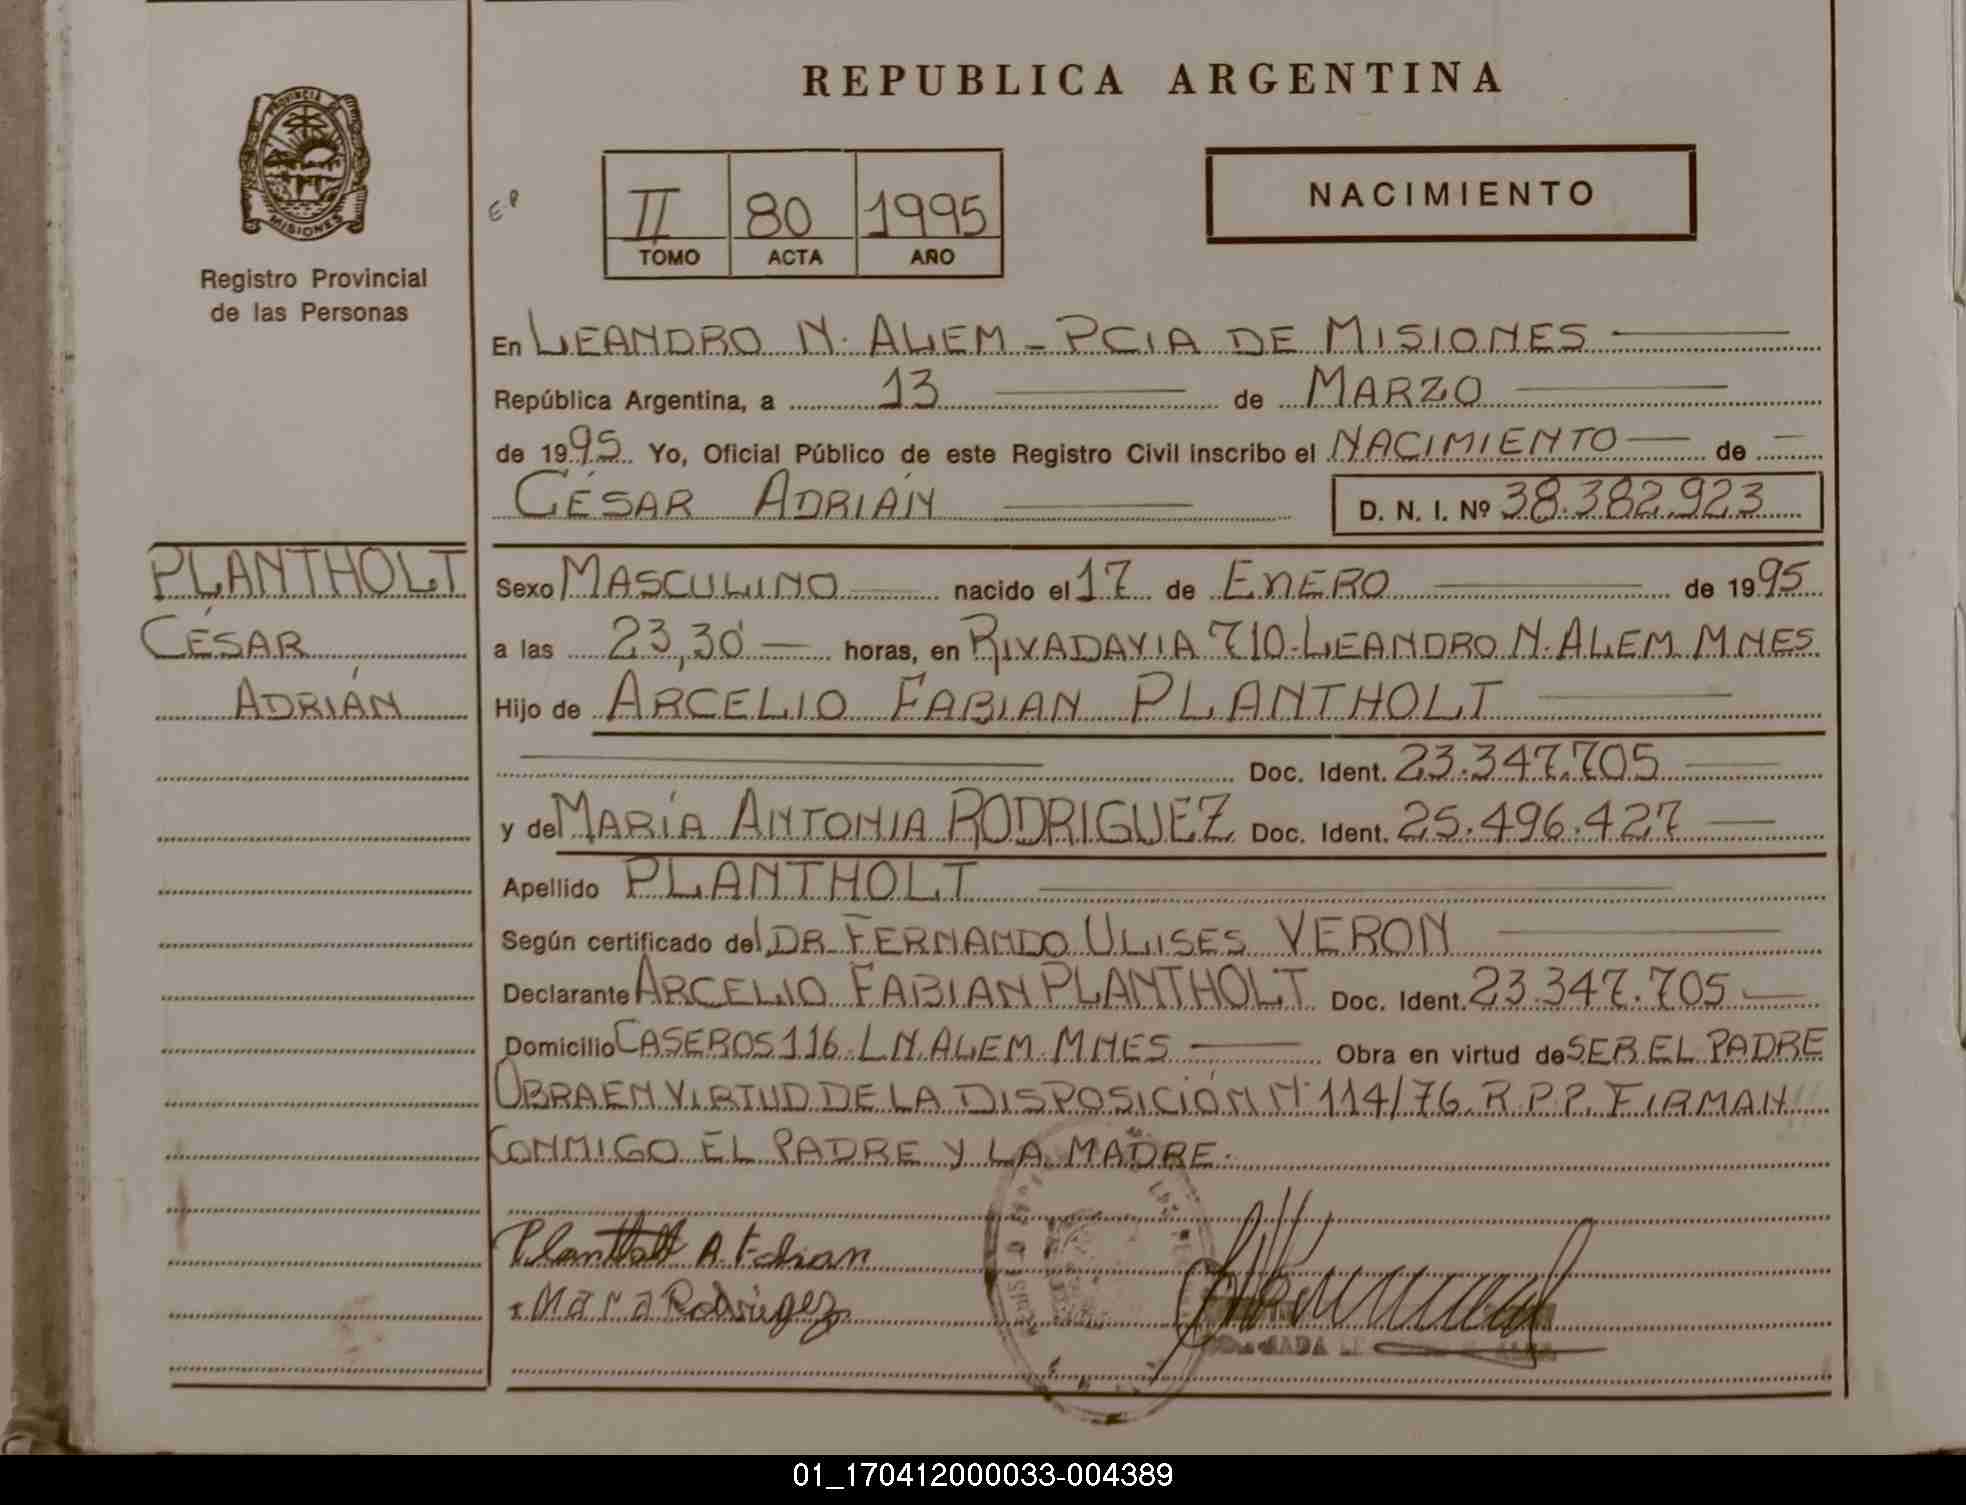 REPUBLICA ARGENTINA
PROVINCIA
MISIONES
Registro Provincial
de las Personas
II 80 1995
TOMO ACTA AÑO
NACIMIENTO
En LEANDRO N. ALEM - PCIA DE MISIONES
República Argentina, a 13 de MARZO
de 1995. Yo, Oficial Público de este Registro Civil inscribo el NACIMIENTO de
CÉSAR ADRIÁN D. N. I. Nº 38.382.923
PLANTHOLT
CÉSAR
ADRIÁN
Sexo MASCULINO nacido el 17 de ENERO de 1995
a las 23,30 horas, en RIVADAVIA 710-LEANDRO N. ALEM MNES
Hijo de ARCELIO FABIAN PLANTHOLT
Doc. Ident. 23.347.705
y de MARÍA ANTONIA RODRIGUEZ Doc. Ident. 25.496.427
Apellido PLANTHOLT
Según certificado del DR FERNANDO ULISES VERON
Declarante ARCELIO FABIAN PLANTHOLT Doc. Ident. 23.347.705
Domicilio CASEROS 116. L N. ALEM. MNES Obra en virtud de SER EL PADRE
OBRA EN VIRTUD DE LA DISPOSICIÓN Nº 114/76. R.P.P. FIRMAN
CONMIGO EL PADRE Y LA MADRE.
Plantholt A. Fabian
Maria Rodriguez
01_170412000033-004389